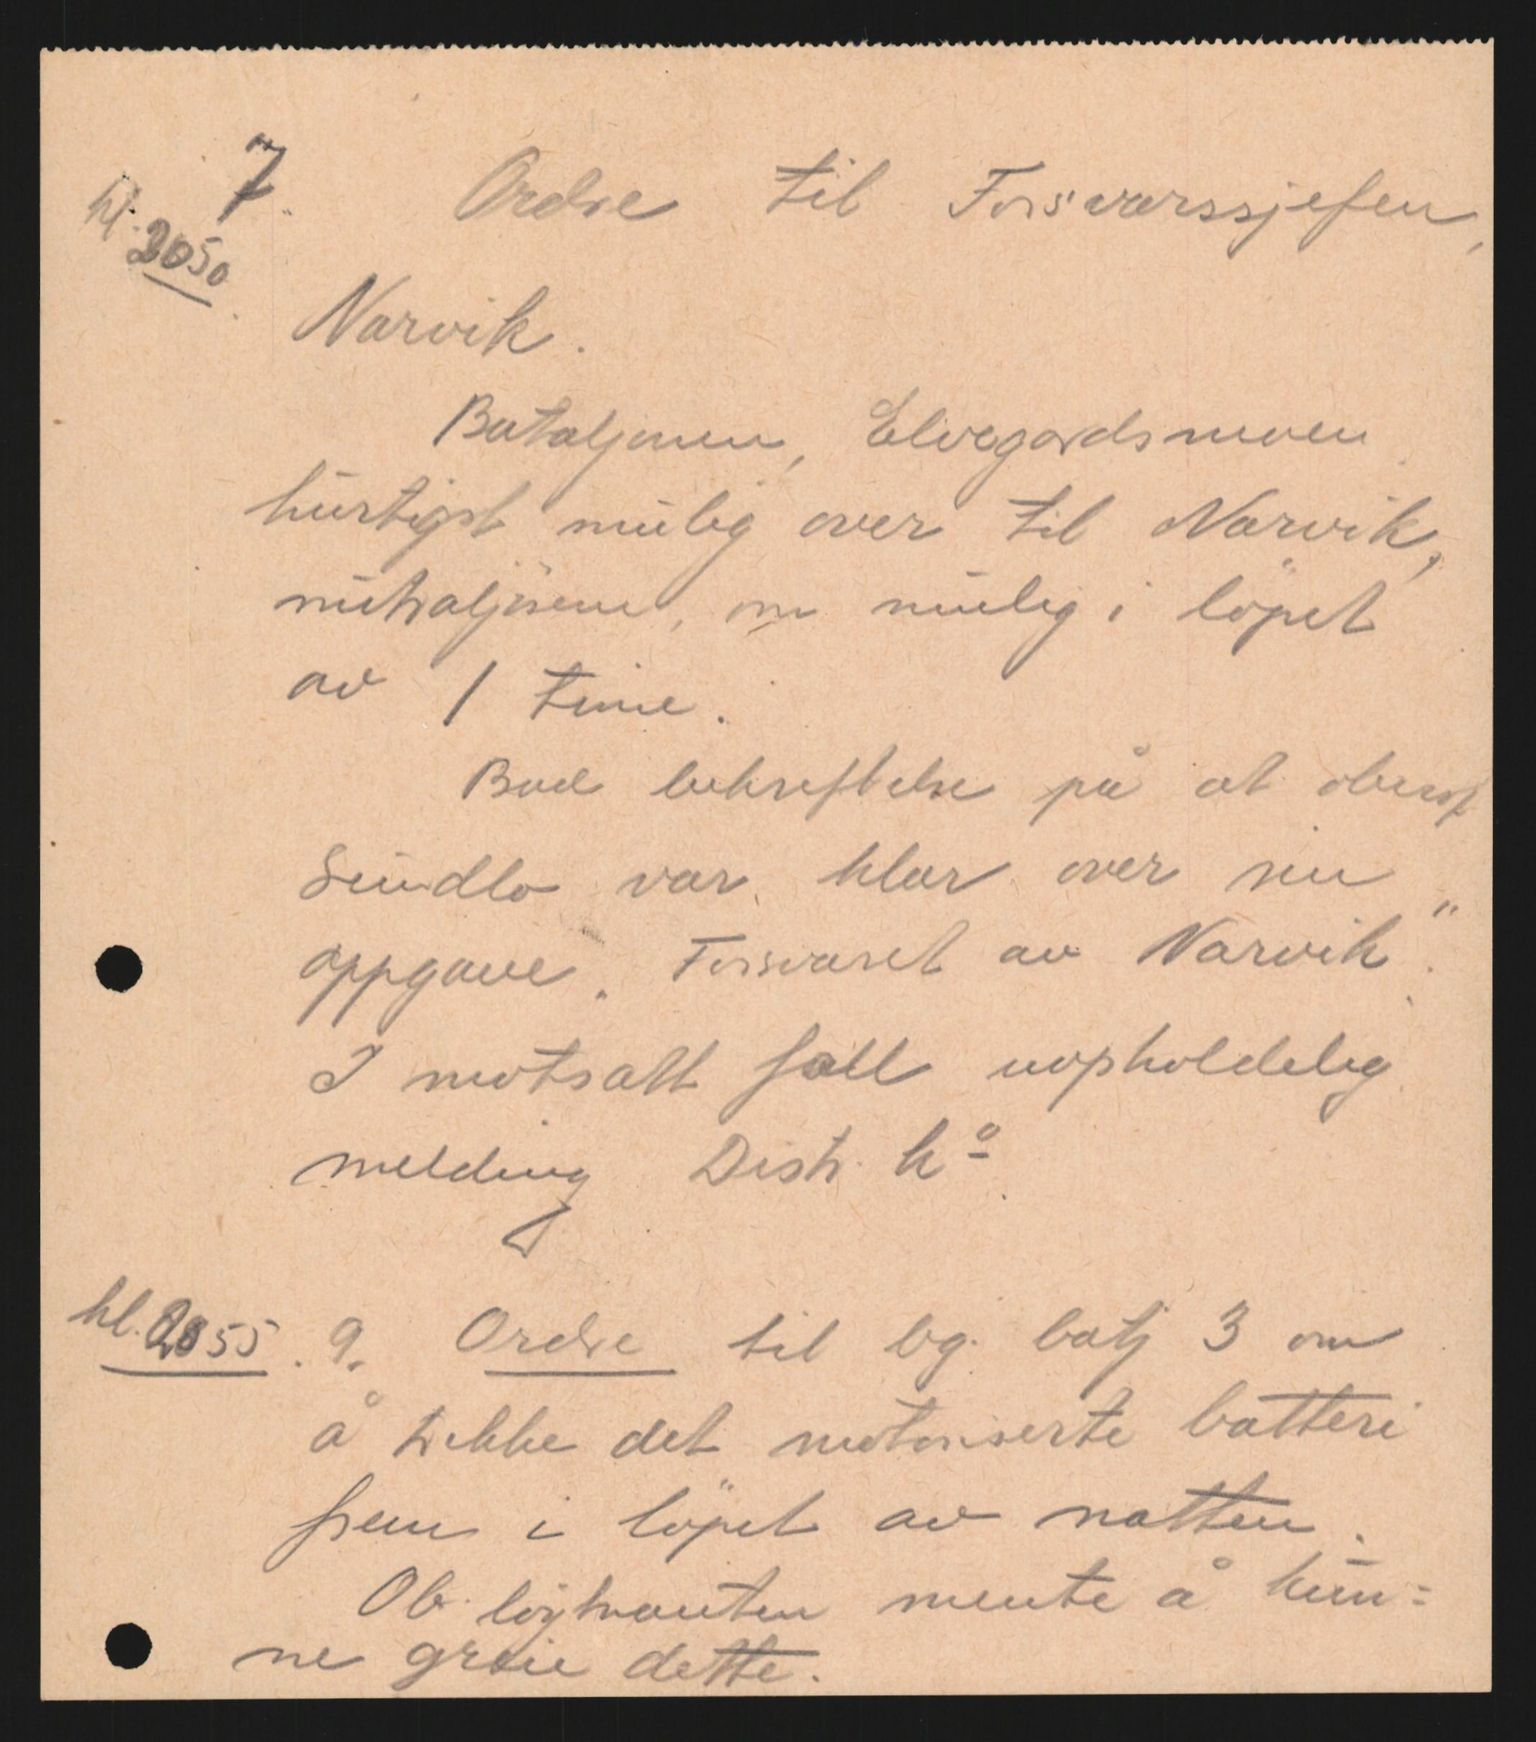 7. Ordre til Forsvarssjefen,
kl. 2050
Narvik.
Bataljonen, Elvegardsmoen
hurtigst mulig over til Narvik,
mitraljösene, om mulig i löpet
av 1 time.
Bad bekreftelse på at oberst
Sundlo var klar over sin
oppgave „Forsvaret av Narvik".
I motsatt fall uopholdelig
melding Distr. kº
kl. 2055. 9. Ordre til bg. batj 3 om
å trekke det motoriserte batteri
frem i löpet av natten.
Ob. löytnanten mente å kun=
ne greie dette.